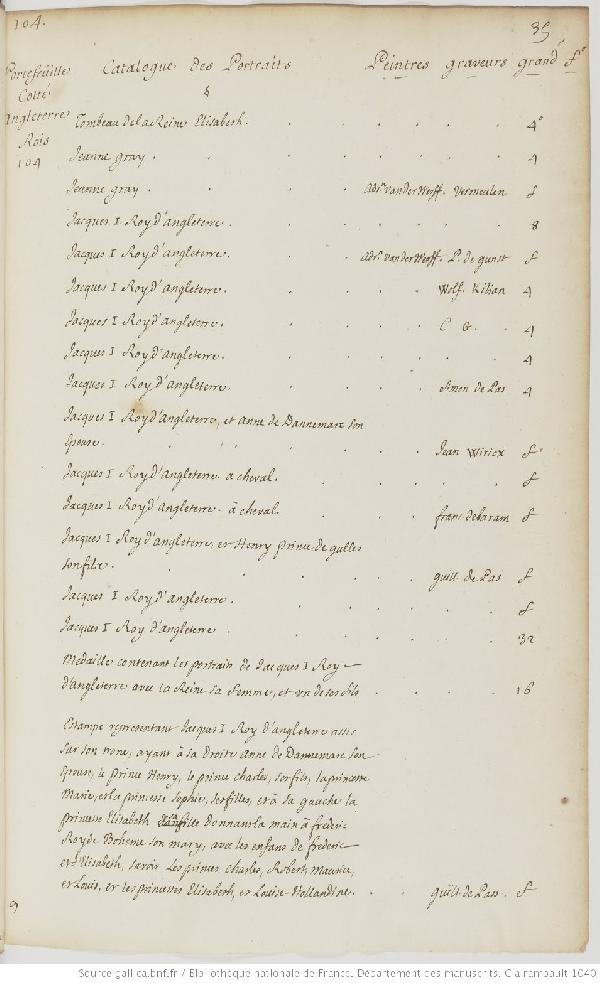 104.
35
Portefeüille Cotté Angleterre Rois 104
Catalogue Des Portraits
Peintres graveurs grandr
Tombeau de la Reine Elisabeth. 4°
Jeanne gray. 4
Jeanne gray. adr. vander Werff. Vermeulen f
Jacques I Roy d'angleterre. 8
Jacques I Roy d'angleterre. adr. vander Werff. P. de gunst f
Jacques I Roy d'angleterre. Wolf. Kilian 4
Jacques I Roy d'angleterre. C. G. 4
Jacques I Roy d'angleterre. 4
Jacques I Roy d'angleterre. Simon de Pas 4
Jacques I Roy d'angleterre, et anne de Dannemarc son
Epouse. Jean Wiriex f
Jacques I Roy d'angleterre a cheval. f
Jacques I Roy d'angleterre à cheval. franc delaram f
Jacques I Roy d'angleterre, et Henry prince de galles
son fils. guill. de Pas f
Jacques I Roy d'angleterre. f
Jacques I Roy d'angleterre 32
Medaille contenant les portraits de Jacques I Roy
d'angleterre avec la Reine sa femme, et un de ses fils 16
Estampe representant Jacques I Roy d'angleterre assis
sur son trone, ayant à sa droite anne de Dannemarc son
Epouse, le prince Henry, le prince charles, ses fils, la princesse
Marie, et la princesse sophie, ses filles, et à sa gauche la
princesse Elisabeth donnant la main à frederic
Roy de Boheme son mary, avec les enfans de frederic
et d'Elisabeth, savoir Les princes charles, Robert, Maurice,
et Louis, et les princesses Elisabeth, et Louise Hollandine. guill. de Pas. f
9
Source gallica.bnf.fr / Bibliothèque nationale de France. Département des manuscrits. Clairambault 1040